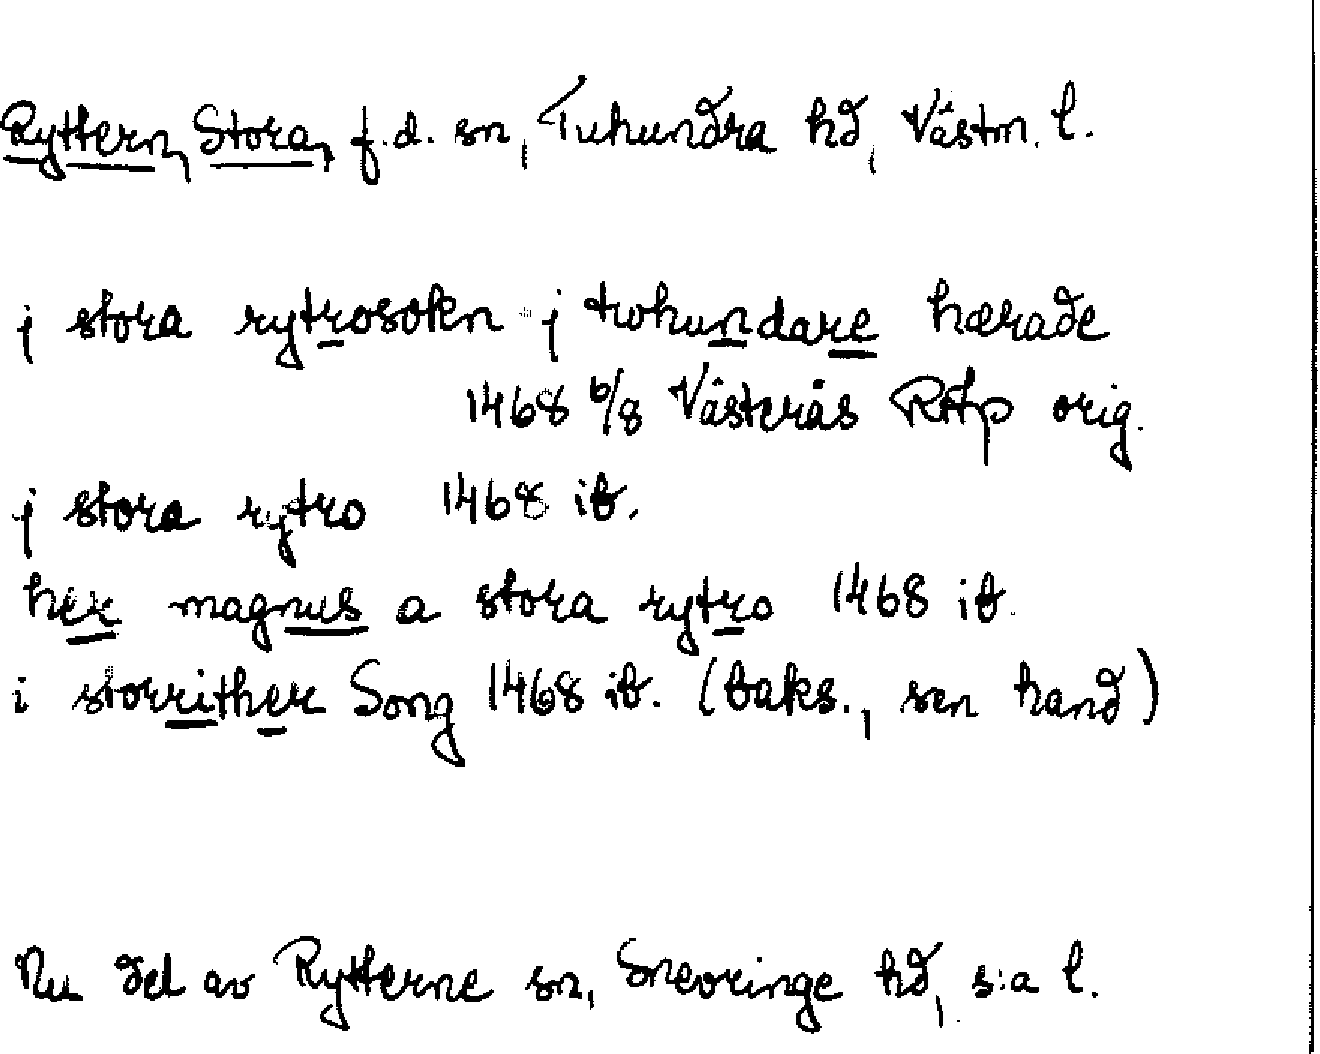 Ryttern, Stora, f.d. sn, Tuhundra hd, Västm. l.
j stora rytrosokn j twhundare hærade
1468 6/8 Västerås RAp orig.
j stora rytro 1468 ib.
her magnus a stora rytro 1468 ib.
i storrither Song 1468 ib. (baks., sen hand)
Nu del av Rytterne sn, Snevringe hd, s:a l.